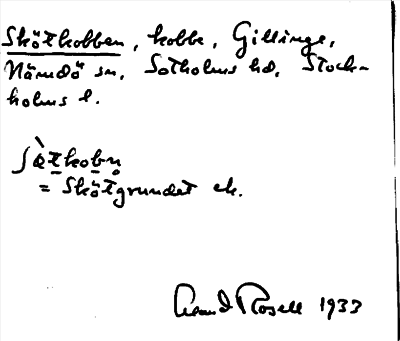 Skötkobben, kobbe, Gillinge,
Nämdö sn, Sotholms hd, Stock-
holms l.
= Skötgrundet ek.
Rosell 1933